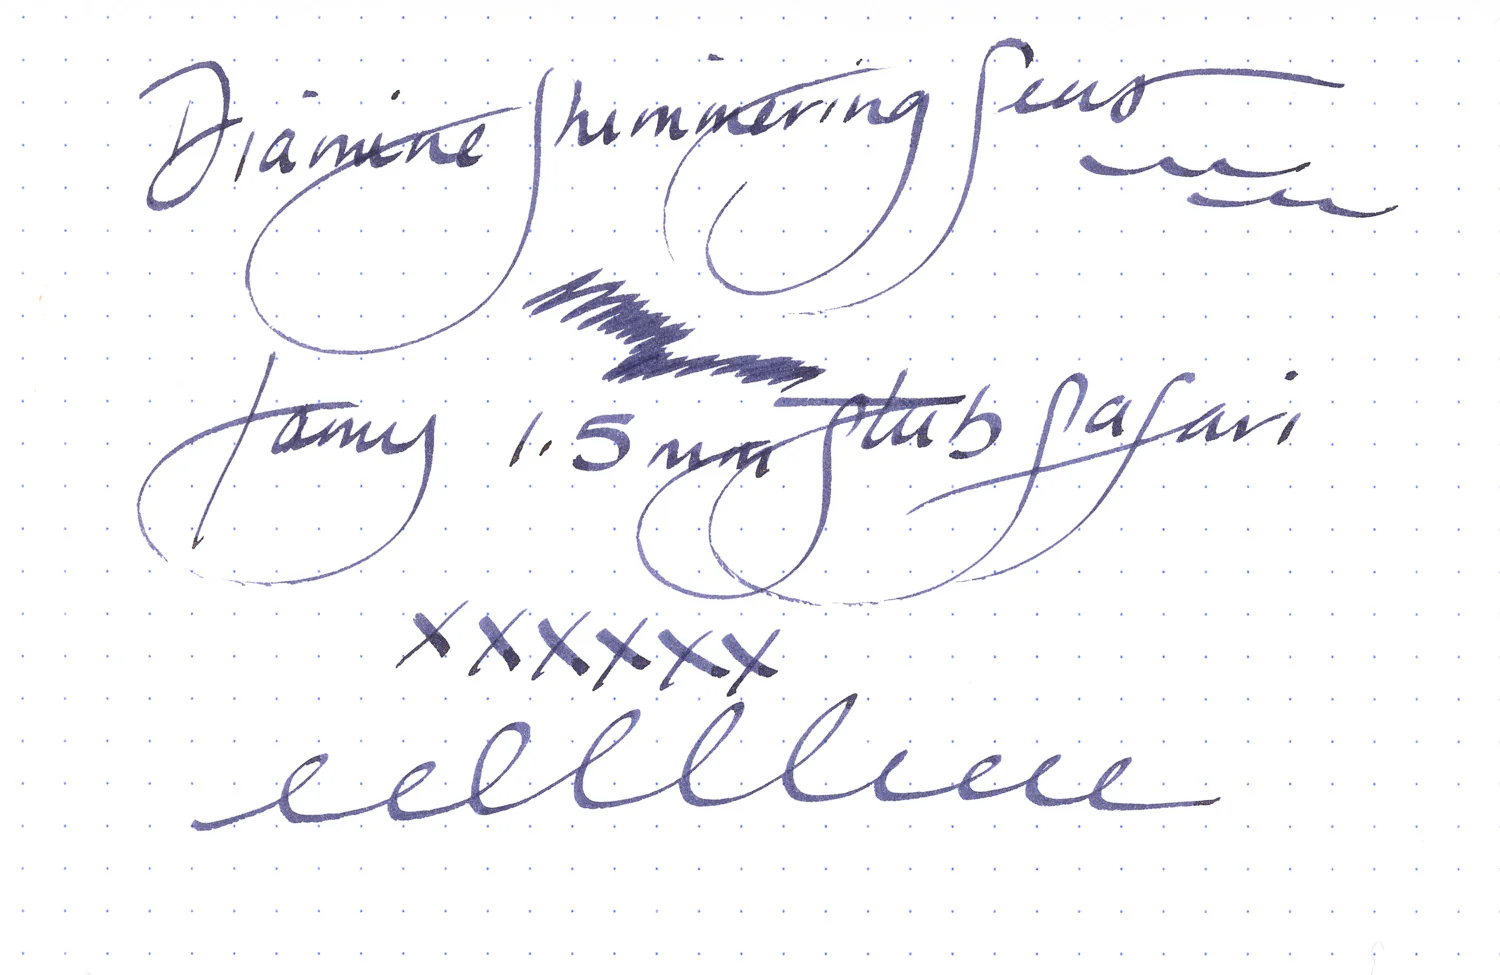 Diamine Shimmering Seas
Lamy 1.5 mm Stub Safari
xxxxxx
eelllleeee